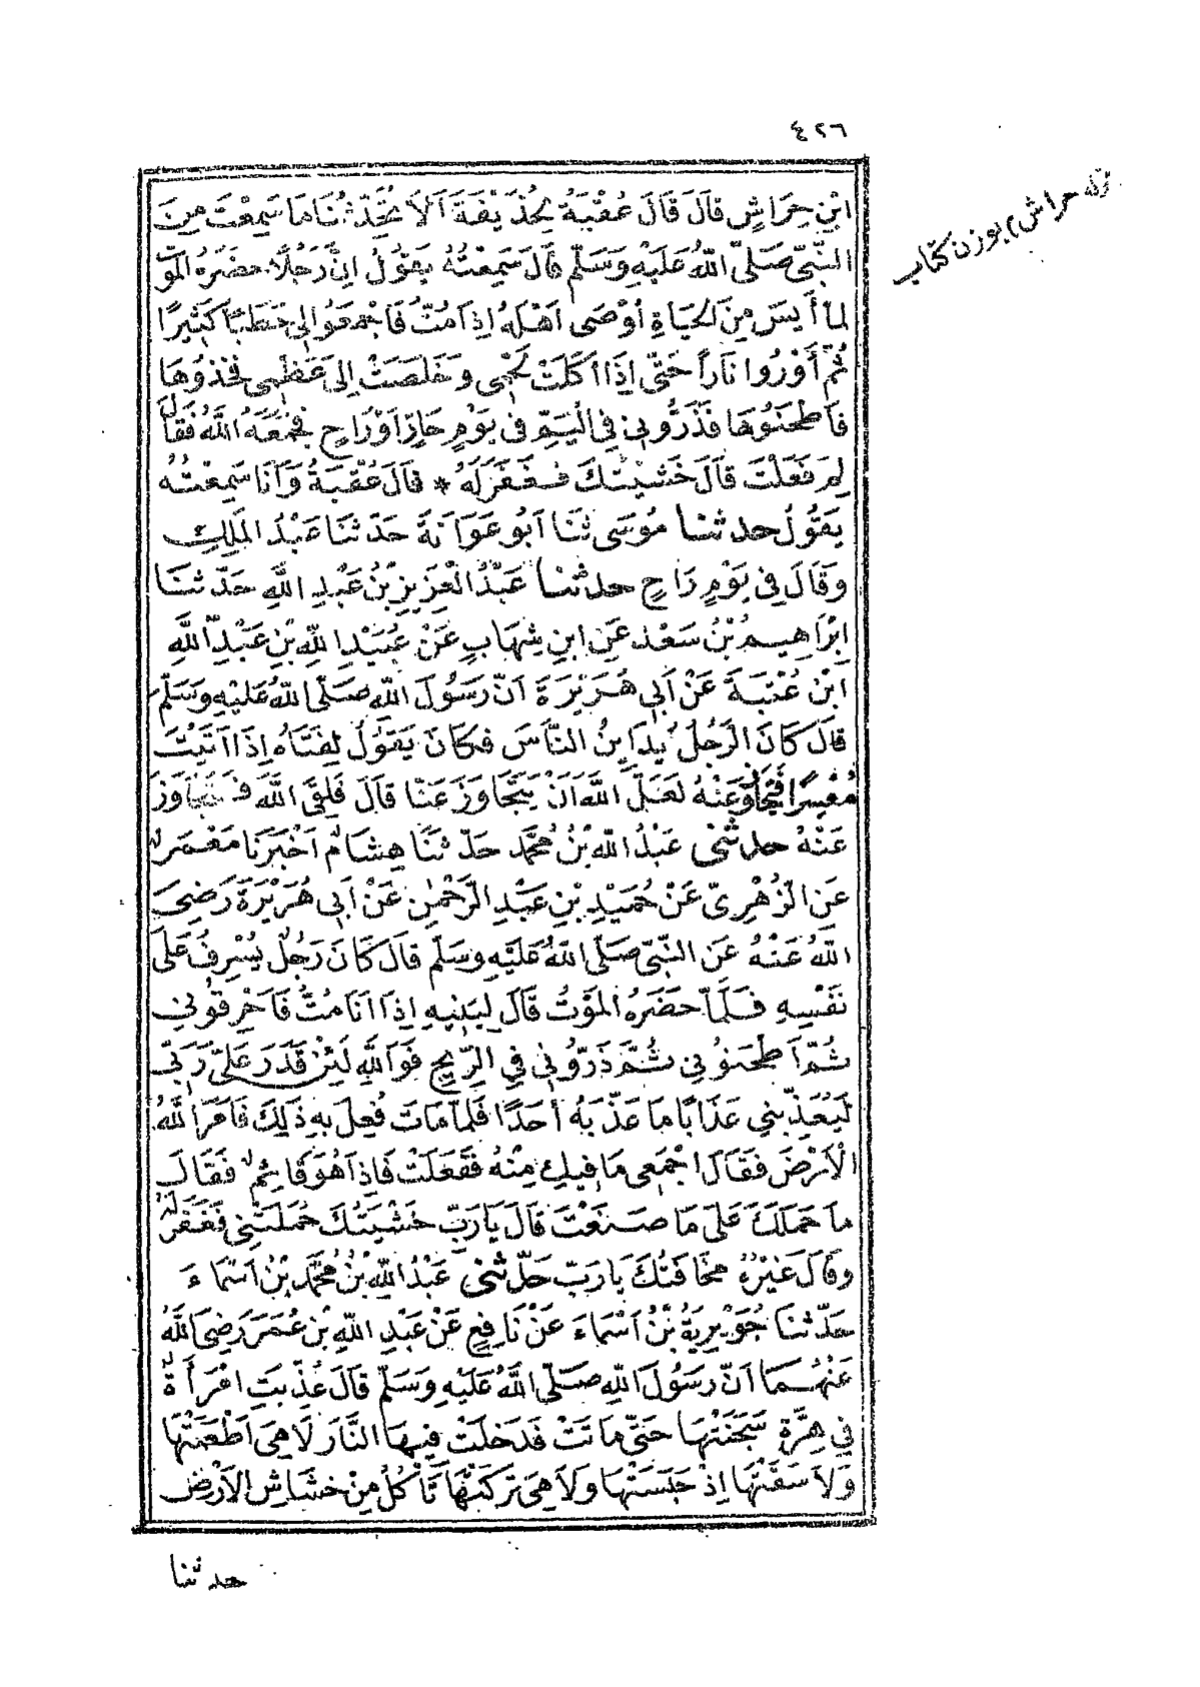 ٤٢٦
قوله حراش بوزن كتاب
ابْنِ حِرَاشٍ قَالَ قَالَ عُقْبَةُ لِحُذَيْفَةَ اَلَا تُحَدِّثُنَا مَا سَمِعْتَ مِنَ
النَّبِيِّ صَلَّى اللهُ عَلَيْهِ وَسَلَّمَ قَالَ سَمِعْتُهُ يَقُولُ اِنَّ رَجُلًا حَضَرَهُ المَوْتُ
لمَّا أَيِسَ مِنَ الحَيَاةِ أَوْصَى اَهْلَهُ اِذَا مُتُّ فَاجْمَعُوا لِي حَطَبًا كَثِيرًا
ثُمَّ أَوْرُوا نَارًا حَتَّى اِذَا اَكَلَتْ لَحْمِى وَخَلَصَتْ اِلَى عَظْمِى فَخُذُوهَا
فَاطْحَنُوهَا فَذَرُّونِي فِي الْيَمِّ فى يَوْمٍ حَارٍّ اَوْ رَاحٍ فَجَمَعَهُ اللهُ فَقَالَ
لِمَ فَعَلْتَ قَالَ خَشْيَتَكَ فَغَفَرَ لَهُ * قَالَ عُقْبَةُ وَاَنَا سَمِعْتُهُ
يَقُولُ حدثنا مُوسَى ثَنَا اَبُو عَوَانَةَ حَدثَنَا عَبْدُ المَلِكِ
وَقَالَ فِي يَوْمٍ رَاحٍ حدثنا عَبْدُ الْعَزِيزِ بْنُ عَبْدِ اللهِ حَدَّثَنَا
ابْرَاهِيمُ بْنُ سَعْدٍ عَنِ ابنِ شِهَابٍ عَنْ عُبَيْدِ اللهِ بْنِ عَبْدِ اللهِ
ابْنِ عُتْبَةَ عَنْ اَبِي هُرَيْرَةَ اَنَّ رَسُولَ اللهِ صَلَّى اللهُ عَلَيْهِ وَسَلَّمَ
قَالَ كَانَ الرَّجُلُ يُدَايِنُ النَّاسَ فَكَانَ يَقُولُ لِفَتَاهُ اِذَا اَتَيْتَ
مُعْسِرًا فَتَجَاوَزْ عَنْهُ لَعَلَّ اللهَ اَنْ يَتَجَاوَزَ عَنَّا قَالَ فَلَقِىَ اللهَ فَتَجَاوَزَ
عَنْهُ حدثنى عَبْدُ اللهِ بْنُ مُحَمَّدٍ حَدّثَنَا هِشَامٌ اَخْبَرَنَا مَعْمَرٌ
عَنِ الزُّهْرِىِّ عَنْ حُمَيْدِ بْنِ عَبْدِ الرَّحْمٰنِ عَنْ اَبِي هُرَيْرَةَ رَضِىَ
اللهُ عَنْهُ عَنِ النَّبِيِّ صَلَّى اللهُ عَلَيْهِ وَسَلَّمَ قَالَ كَانَ رَجُلٌ يُسْرِفُ عَلَى
نَفْسِهِ فَلَمَّا حَضَرَهُ المَوْتُ قَالَ لِبَنِيهِ اِذَا اَنَا مُتُّ فَاَحْرِقُونِي
ثُمَّ اَطْحَنُونِي ثُمَّ ذَرُّونِي فِي الرِّيحِ فَوَاللهِ لَئِنْ قَدَرَ عَلَىَّ رَبِّي
لَيُعَذِّبَنِي عَذَابًا مَا عَذَّبَهُ أَحَدًا فَلَمَّا مَاتَ فُعِلَ بِهِ ذَلِكَ فَاَمَرَ اللهُ
الْاَرْضَ فَقَالَ اجْمَعِى مَا فِيكِ مِنْهُ فَفَعَلَتْ فَاِذَا هُوَ قَائِمٌ فَقَالَ
مَا حَمَلَكَ عَلَى مَا صَنَعْتَ قَالَ يَارَبِّ خَشْيَتُكَ حَمَلَتْنِي فَغَفَرَ لَهُ
وَقَالَ غَيْرُهُ مَخَافَتُكَ يَارَبِّ حَدّثنى عَبْدُ اللهِ بْنُ مُحَمَّدِ بْنِ اَسْمَاءَ
حَدّثَنَا جُوَيْرِيَةُ بْنُ اَسْمَاءَ عَنْ نَافِعٍ عَنْ عَبْدِ اللهِ بْنِ عُمَرَ رَضِىَ اللهُ
عَنْهُمَا اَنَّ رَسُولَ اللهِ صَلَّى اللهُ عَلَيْهِ وَسَلَّمَ قَالَ عُذِّبَتِ امْرَأَةٌ
فِي هِرَّةٍ سَجَنَتْهَا حَتَّى مَاتَتْ فَدَخَلَتْ فِيهَا النَّارَ لَا هِىَ اَطْعَمَتْهَا
وَلَا سَقَتْهَا اِذْ حَبَسَتْهَا وَلَا هِىَ تَرَكَتْهَا تَأْكُلُ مِنْ خَشَاشِ الاَرْضِ
حدثنا